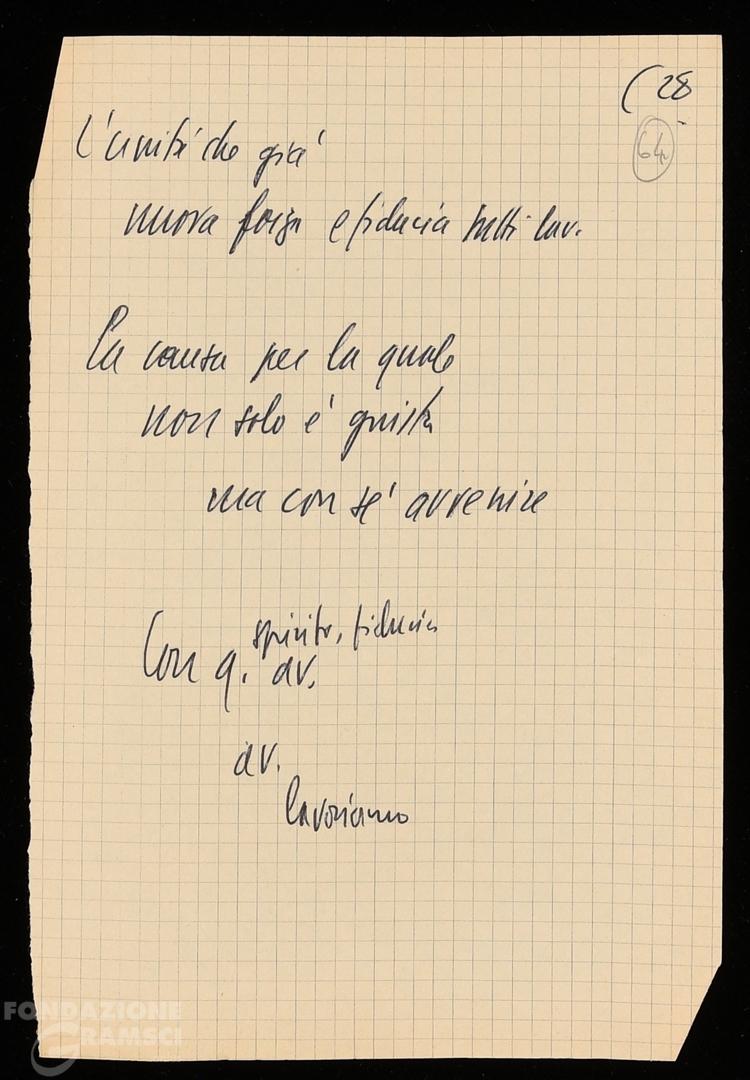 (28
64
L'unità che già
nuova forza e fiducia tutti lav.
La causa per la quale
non solo è giusta
ma con sé avvenire
spirito, fiducia
Con q. av.
av.
lavoriamo
FONDAZIONE
GRAMSCI